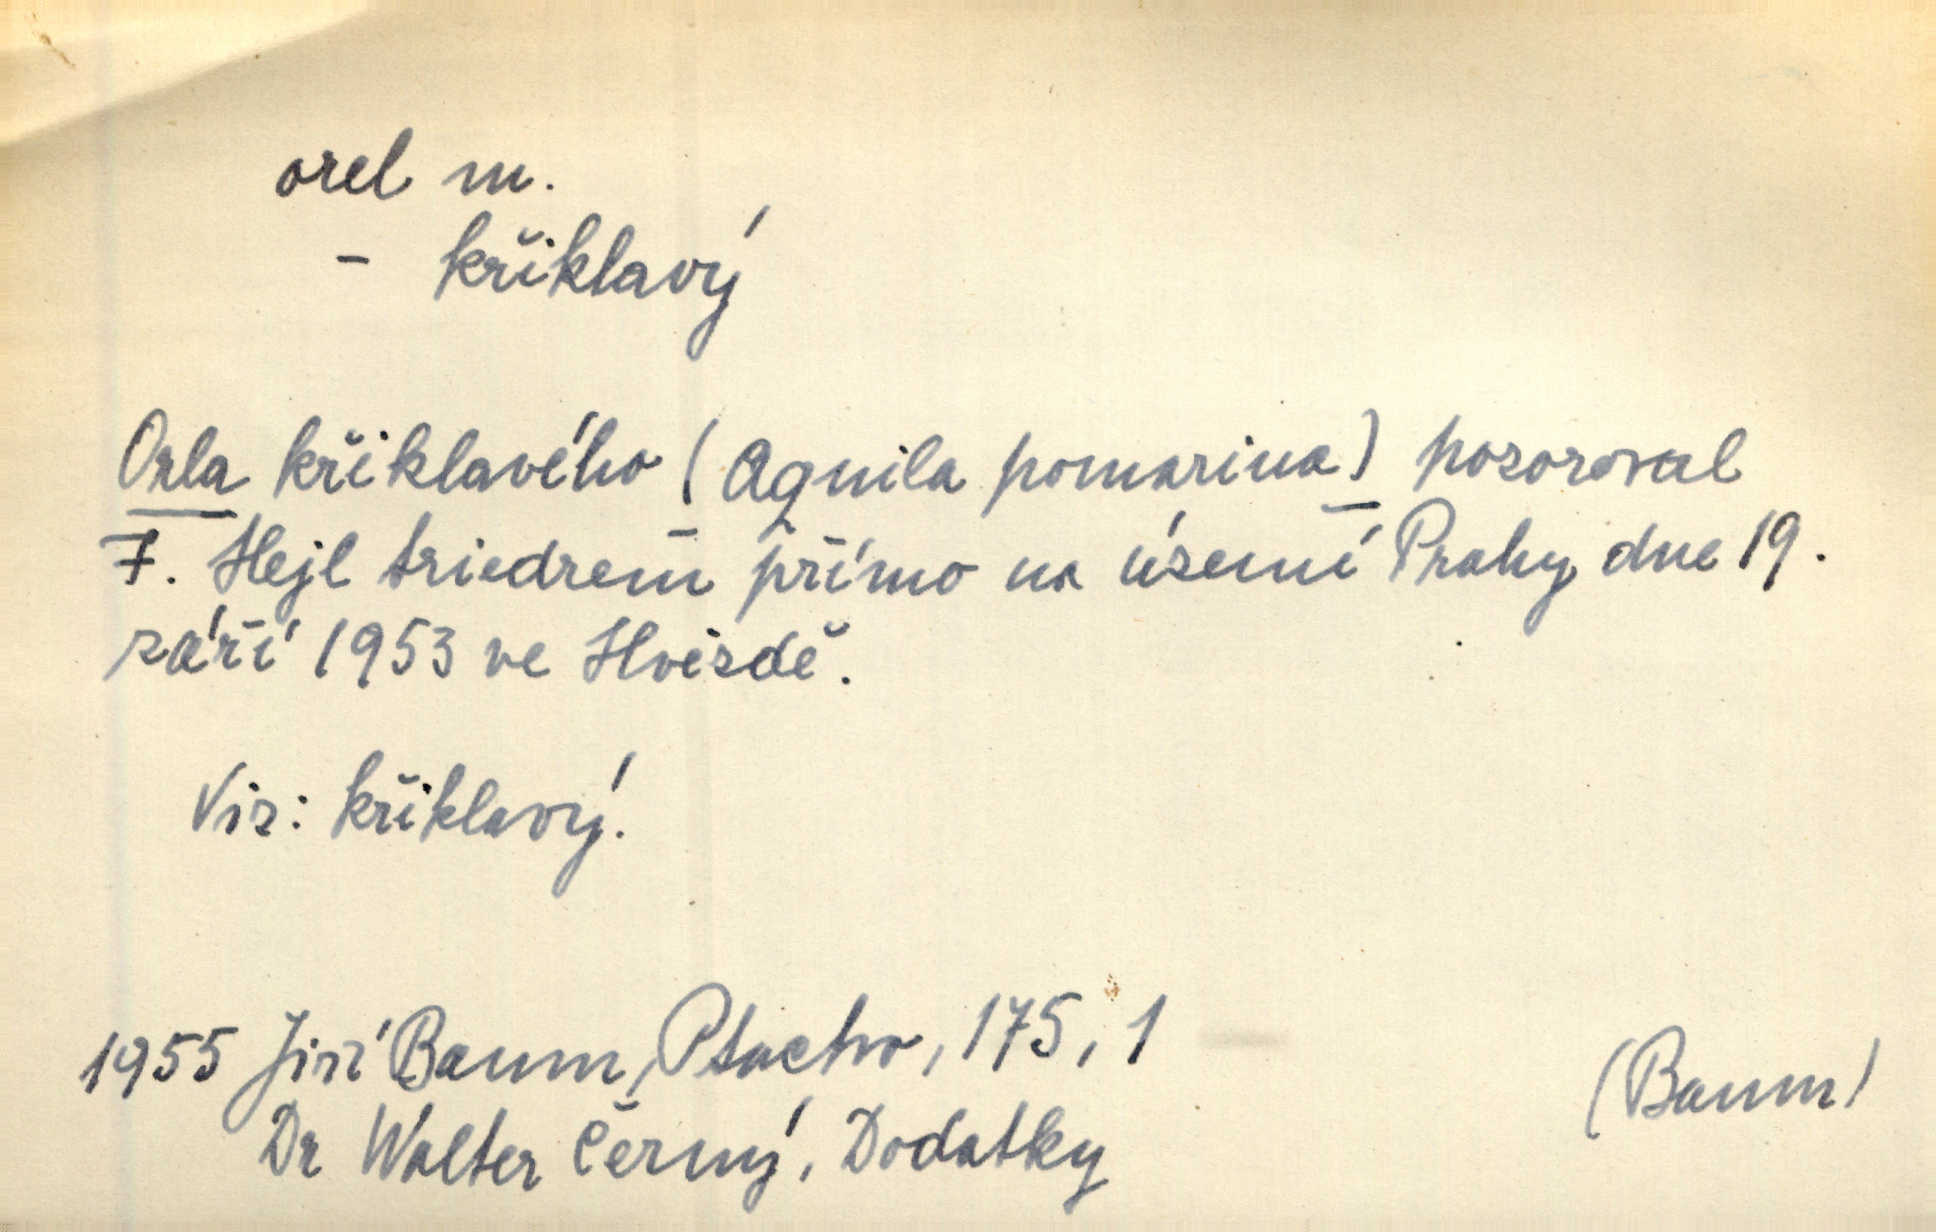 orel m.
- křiklavý
Orla křiklavého (Aquila pomarina) pozoroval
F. Hejl triedrem přímo na území Prahy dne 19.
září 1953 ve Hvězdě.
Viz: křiklavý.
1955 Jiří Baum, Ptactvo, 175, 1
(Baum)
Dr Walter Černý, Dodatky